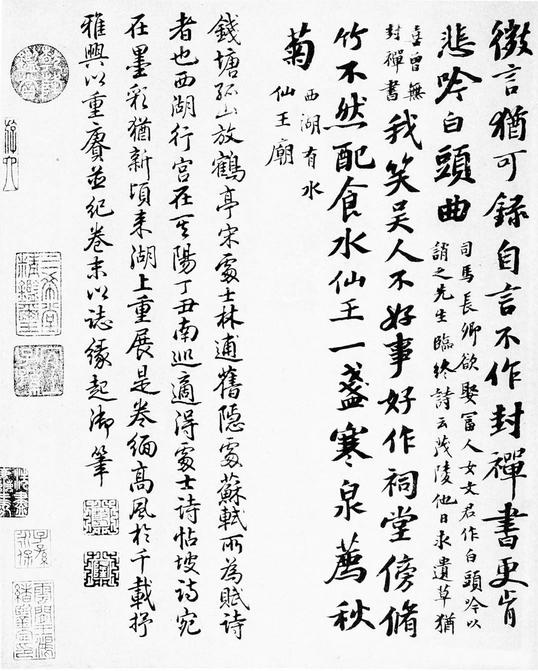 微言猶可錄自言不作封禪書更肯
悲吟白頭曲
司馬長卿欲娶富人女文君作白頭吟以
誚之先生臨終詩云茂陵他日求遺草猶
喜曾無
封禪書
我笑吳人不好事好作祠堂傍脩
竹不然配食水仙王一盞寒泉薦秋
菊
西湖有水
仙王廟
錢塘孤山放鶴亭宋處士林逋舊隱處蘇軾所為賦詩
者也西湖行宮在其陽丁丑南巡適得處士詩帖坡詩宛
在墨彩猶新頃来湖上重展是卷緬高風於千載抒
雅興以重賡並紀卷末以誌緣起御筆
三希堂
精鑑璽
子孫
永保